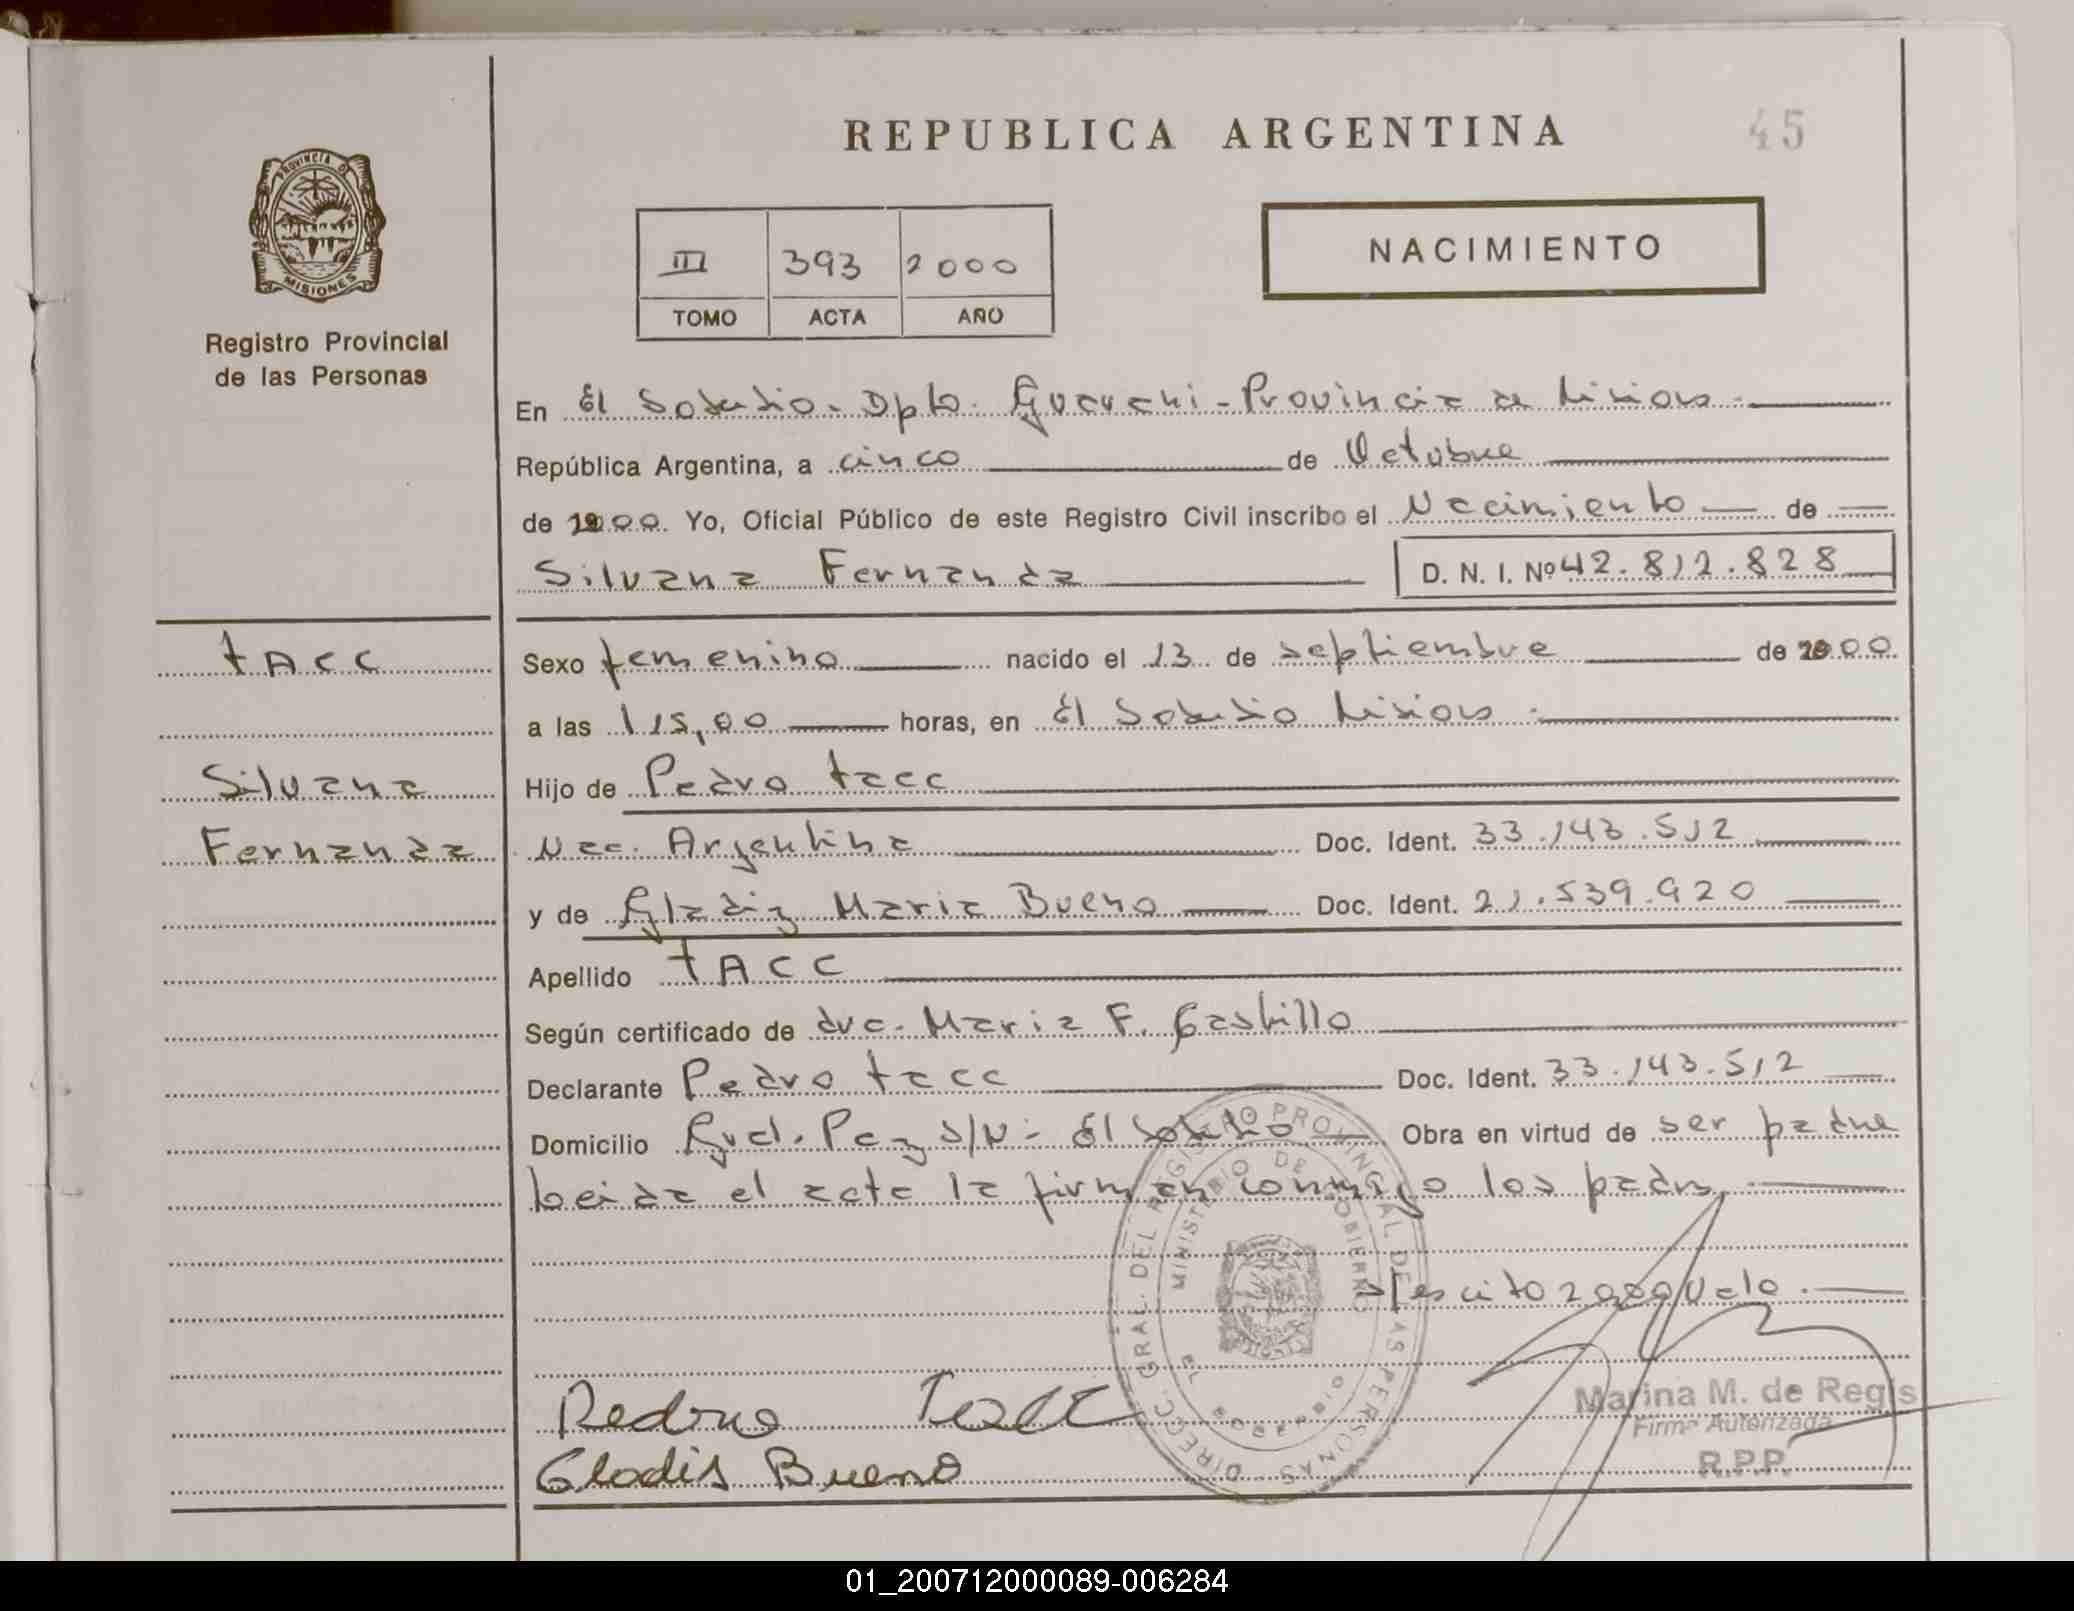 REPUBLICA ARGENTINA
45
PROVINCIA DE
MISIONES
Registro Provincial
de las Personas
III 393 2000
TOMO ACTA AÑO
NACIMIENTO
En El Soberbio - Dpto. Guarani - Provincia de Misiones
República Argentina, a cinco de Octubre
de 2000. Yo, Oficial Público de este Registro Civil inscribo el Nacimiento de
Silvana Fernanda
D. N. I. Nº 42.812.828
tacc
Silvana
Fernanda
Sexo femenino nacido el 13 de septiembre de 2000
a las 15,00 horas, en El Soberbio Misiones
Hijo de Pedro tacc
Nac. Argentina Doc. Ident. 33.143.512
y de Gladiz Maria Bueno Doc. Ident. 21.539.920
Apellido tACC
Según certificado de dra. Maria F. Castillo
Declarante Pedro tacc Doc. Ident. 33.143.512
Domicilio Gral. Paz S/N - El Soberbio Obra en virtud de ser padre
leida el acta la firman conmigo los padres
s/escrito 2000 vale
Pedro Tacc
Gladis Bueno
DIREC. GRAL. DEL REGISTRO PROVINCIAL DE LAS PERSONAS
MINISTERIO DE GOBIERNO
EL SOBERBIO
Marina M. de Regis
Firma Autorizada
R.P.P.
01_200712000089-006284